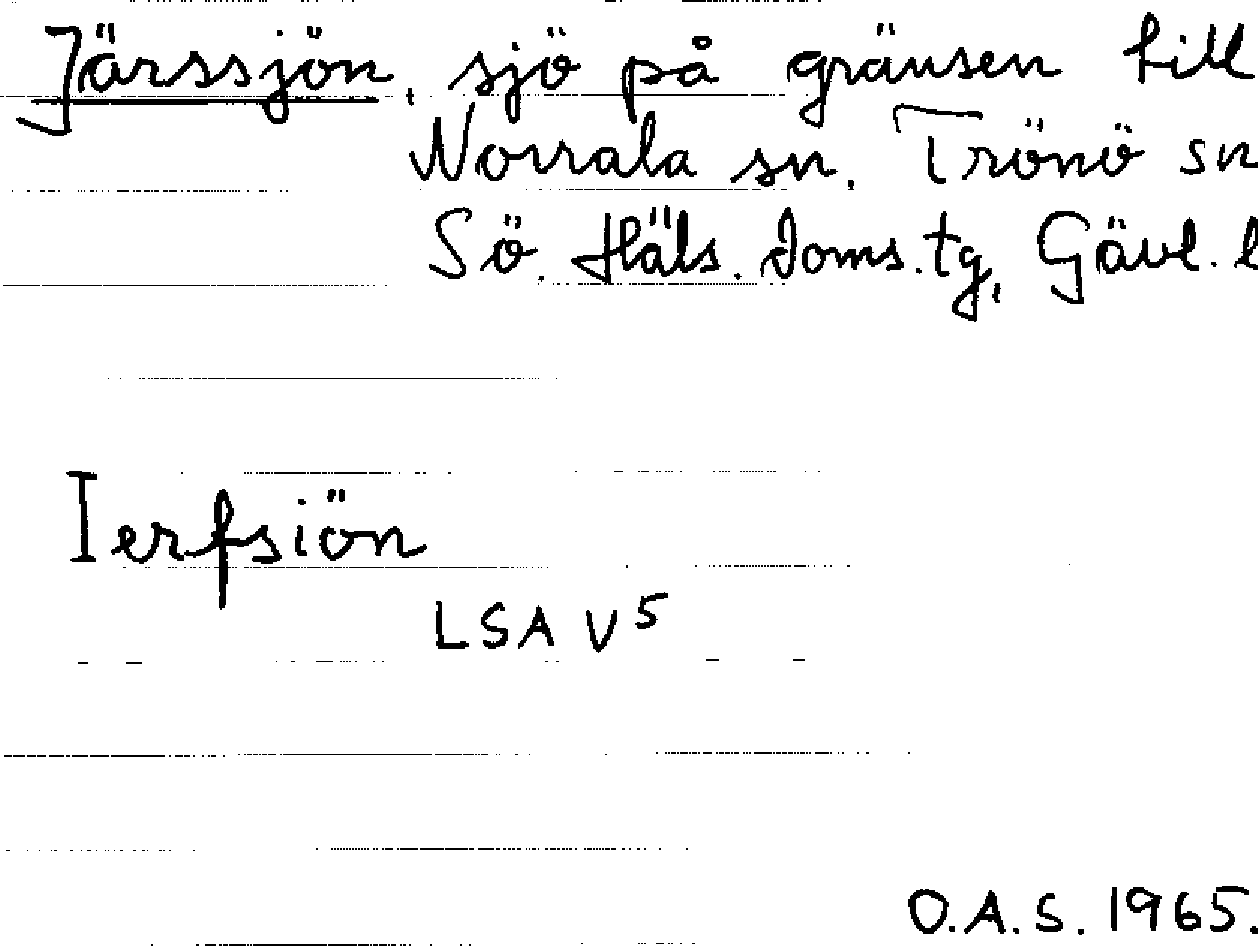 Järssjön, sjö på gränsen till
Norrala sn. Trönö sn
Sö. Häls. doms.tg, Gävl. l
Ierfsiön
LSA V5
O.A.S. 1965.